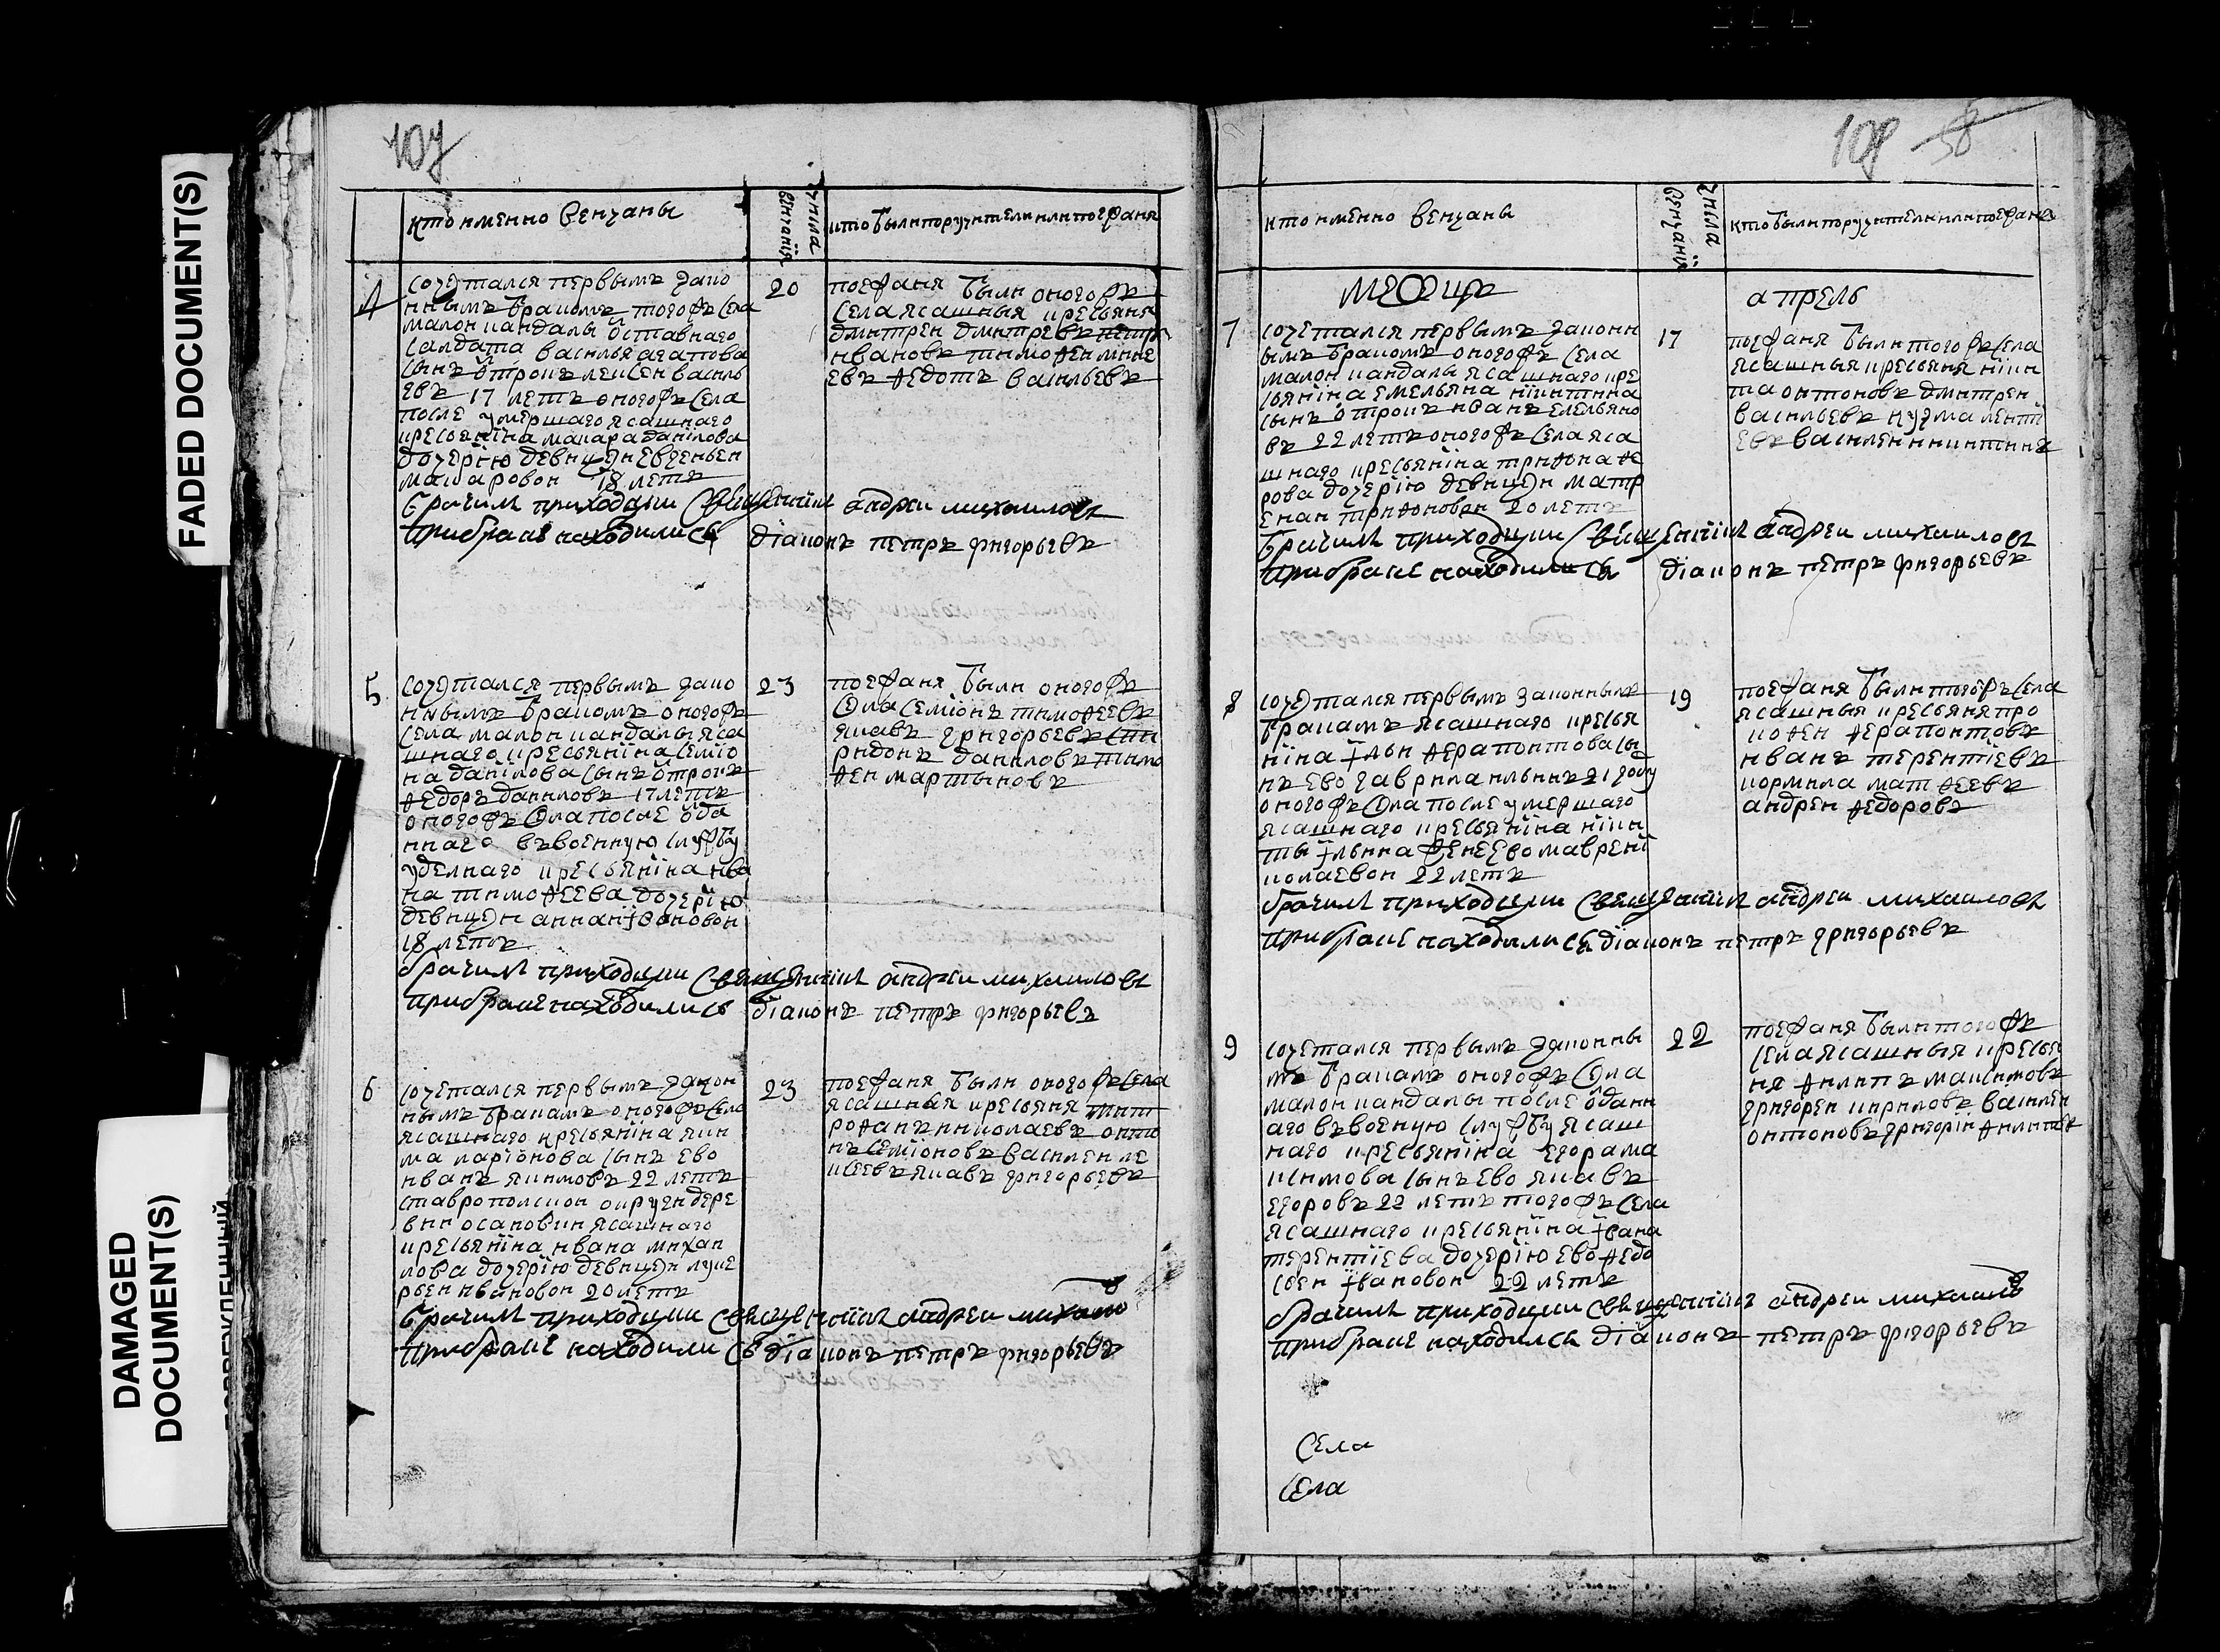 FADED DOCUMENT(S)
DAMAGED
DOCUMENT(S)
107
кто именно венчаны
числа
венчанiя
кто были поручители или поезжаня
4
сочетался первымъ зако
ннымъ бракомъ тогожъ села
малои кандалы отставнаго
салдата василья агапова
сынъ отрокъ леѯеи василь
евъ 17 летъ оногожъ села
после умершаго ясашнаго
кресьянїна макара данїлова
дочерїю девицеи евгеньеи
макаровои 18 летъ
20
поезжаня были оногожъ
села ясашныя кресьяня
дмитреи дмитревъ петръ
ивановъ тимоѳеи мине
евъ ѳедотъ васильевъ
Брачилъ приходцки священникъ андреи михаиловъ
при браке находились дiаконъ петръ григорьевъ
5
сочетался первымъ зако
ннымъ бракомъ оногожъ
села малои кандалы яса
шнаго кресьянїна семїо
на данїлова сынъ отрокъ
ѳедоръ даниловъ 17 летъ
оногожъ села после ода
ннаго въ военную службу
уделнаго кресьянїна ива
на тимоѳеева дочерїю
девицеи аннаи iвановои
18 летъ
23
поезжаня были оногожъ
села семїонъ тимоѳеевъ
яковъ григорьевъ спи
ридонъ даниловъ тимо
ѳеи мартыновъ
брачилъ приходцки священникъ андреи михаиловъ
при браке находились дiаконъ петръ григорьевъ
6
сочетался первымъ закон
нымъ бракамъ оногожъ села
ясашнаго кресьянїна яки
ма ларїонова сынъ ево
иванъ якимовъ 22 летъ
ставропольскои округи дере
вни осановки ясашнаго
кресьянїна ивана михаи
лова дочерїю девицеи луке
рьеи ивановои 20 летъ
23
поезжаня были оногожъ села
ясашныя кресьяня мит
роѳанъ николаевъ онто
нъ семїоновъ василеи ле
ѯеевъ яковъ григорьевъ
Брачилъ приходцки священникъ андреи михаило
при браке находились дiаконъ петръ григорьевъ
108 58
кто именно венчаны
числа
венчанiя
кто были поручители или поезжаня
месецъ
апрель
7
сочетался первымъ законн
ымъ бракомъ оногожъ села
малои кандалы ясашнаго кре
сьянїна емельяна нїкитина
сынъ отрокъ иванъ емельяно
въ 22 летъ оногожъ села яса
шнаго кресьянїна триѳона ѳе
рова дочерїю девицеи матр
енаи триѳоновои 20 летъ
17
поезжаня были тогожъ села
ясашныя кресьяня нїки
та онтоновъ дмитреи
васильевъ кузма ленті
евъ василеи никитинъ
Брачилъ приходцки священникъ андреи михаиловъ
при браке находились дiаконъ петръ григорьевъ
8
сочетался первымъ законнымъ
бракамъ ясашнаго кресья
нїна iльи ѳерапонтова сы
нъ ево гаврила ильинъ 21 году
оногожъ села после умершаго
ясашнаго кресьянїна нїки
ты iльина жене ево мавре нї
колаевои 22 летъ
19
поезжаня были тогожъ села
ясашныя кресьяня про
коѳеи ѳерапонтовъ
иванъ терентїевъ
кормила матѳеевъ
андреи ѳедоровъ
брачилъ приходцки священникъ андреи михаиловъ
при браке находились дiаконъ петръ григорьевъ
9
сочетался первымъ законны
мъ бракамъ оногожъ села
малои кандалы после оданн
аго въ военую службу ясаш
наго кресьянїна егора ма
ксимова сынъ ево яковъ
егоровъ 22 летъ тогожъ села
ясашнаго кресьянїна iвана
терентїева дочерїю ево ѳедо
сеи iвановои 22 летъ
22
поезжаня были тогожъ
села ясашныя кресья
ня ѳилипъ максимовъ
григореи кириловъ василеи
онтоновъ григорїи ѳилипов
брачилъ приходцки священникъ андреи михаиловъ
при браке находились дiаконъ петръ григорьевъ
села
села